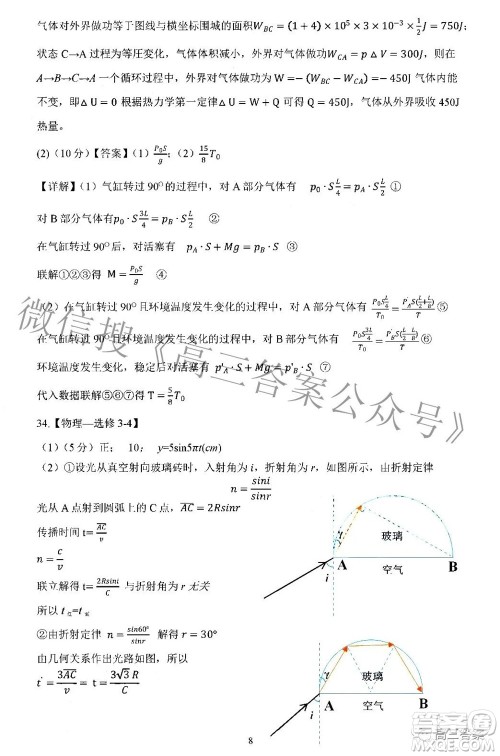 气体对外界做功等于图线与横坐标围城的面积W_BC = (1 + 4) × 10⁵ × 3 × 10⁻³ × 1/2 J = 750J；
状态 C→A 过程为等压变化，气体体积减小，外界对气体做功W_CA = p△V = 300J，则在
A→B→C→A 一个循环过程中，外界对气体做功为 W = −(W_BC − W_CA) = −450J 气体内能
不变，即△U = 0 根据热力学第一定律△U = W + Q 可得 Q = 450J，气体从外界吸收 450J
热量。
(2)(10 分)【答案】(1) P₀S/g；(2) 15/8 T₀
【详解】(1) 气缸转过 90⁰的过程中，对 A 部分气体有 p₀ · S L/4 = p_A · S L/2 ①
对 B 部分气体有p₀ · S 3L/4 = p_B · S L/2 ②
在气缸转过 90⁰后，对活塞有 p_A · S + Mg = p_B · S ③
联解①②③得 M = P₀S/g ④
(2) 在气缸转过 90⁰且环境温度发生变化的过程中，对 A 部分气体有
在气缸转过 90⁰且环境温度发生变化的过程中，对 B 部分气体有
环境温度发生变化，稳定后对活塞有 p'_A · S + Mg = p'_B · S ⑦
代入数据联解⑤⑥⑦得 T = 5/8 T₀
34.【物理—选修 3-4】
(1)(5 分) 正； 10； y=5sin5πt(cm)
(2) ①设光从真空射向玻璃砖时，入射角为 i，折射角为 r，如图所示，由折射定律
n = sini/sinr
光从 A 点射到圆弧上的 C 点，AC = 2Rsinr
传播时间 t = AC/v
n = c/v
联立解得 t = 2Rsini/C 与折射角为 r 无关
②由折射定律 n = sin60°/sinr 解得 r = 30°
由几何关系作出光路如图，所以
t' = 3AC/v = t = 3√3 R/C
r
玻璃
A
B
i
空气
r
玻璃
A
B
i
空气
8
微信搜《高三答案公众号》
高三答案